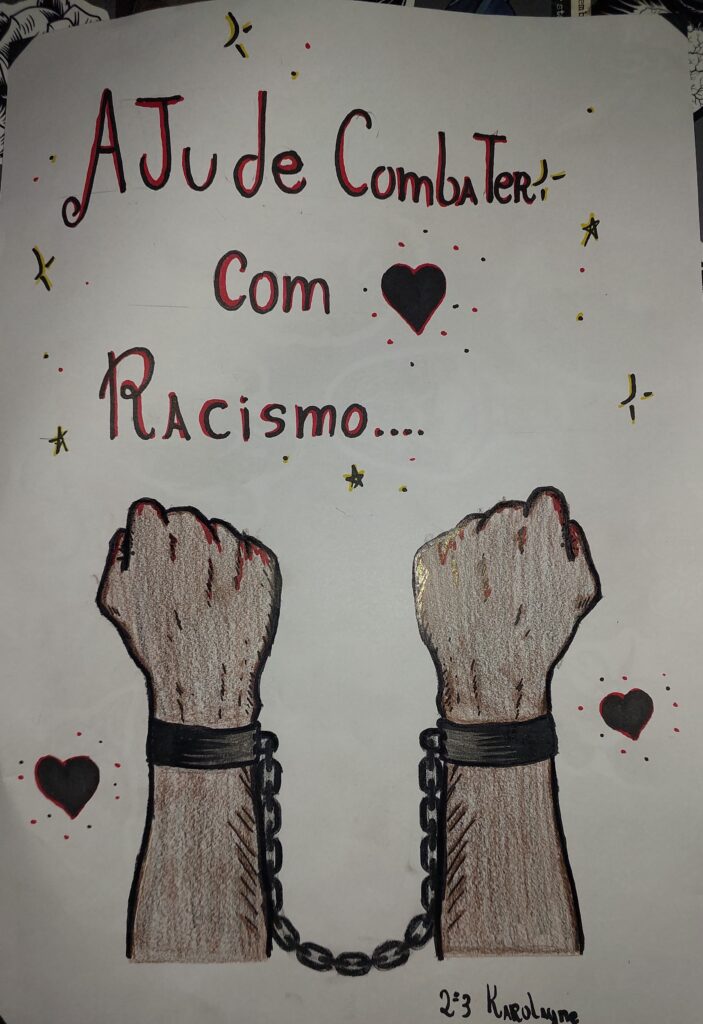 AJude CombaTer
com
Racismo....
2ª3 Karolayne